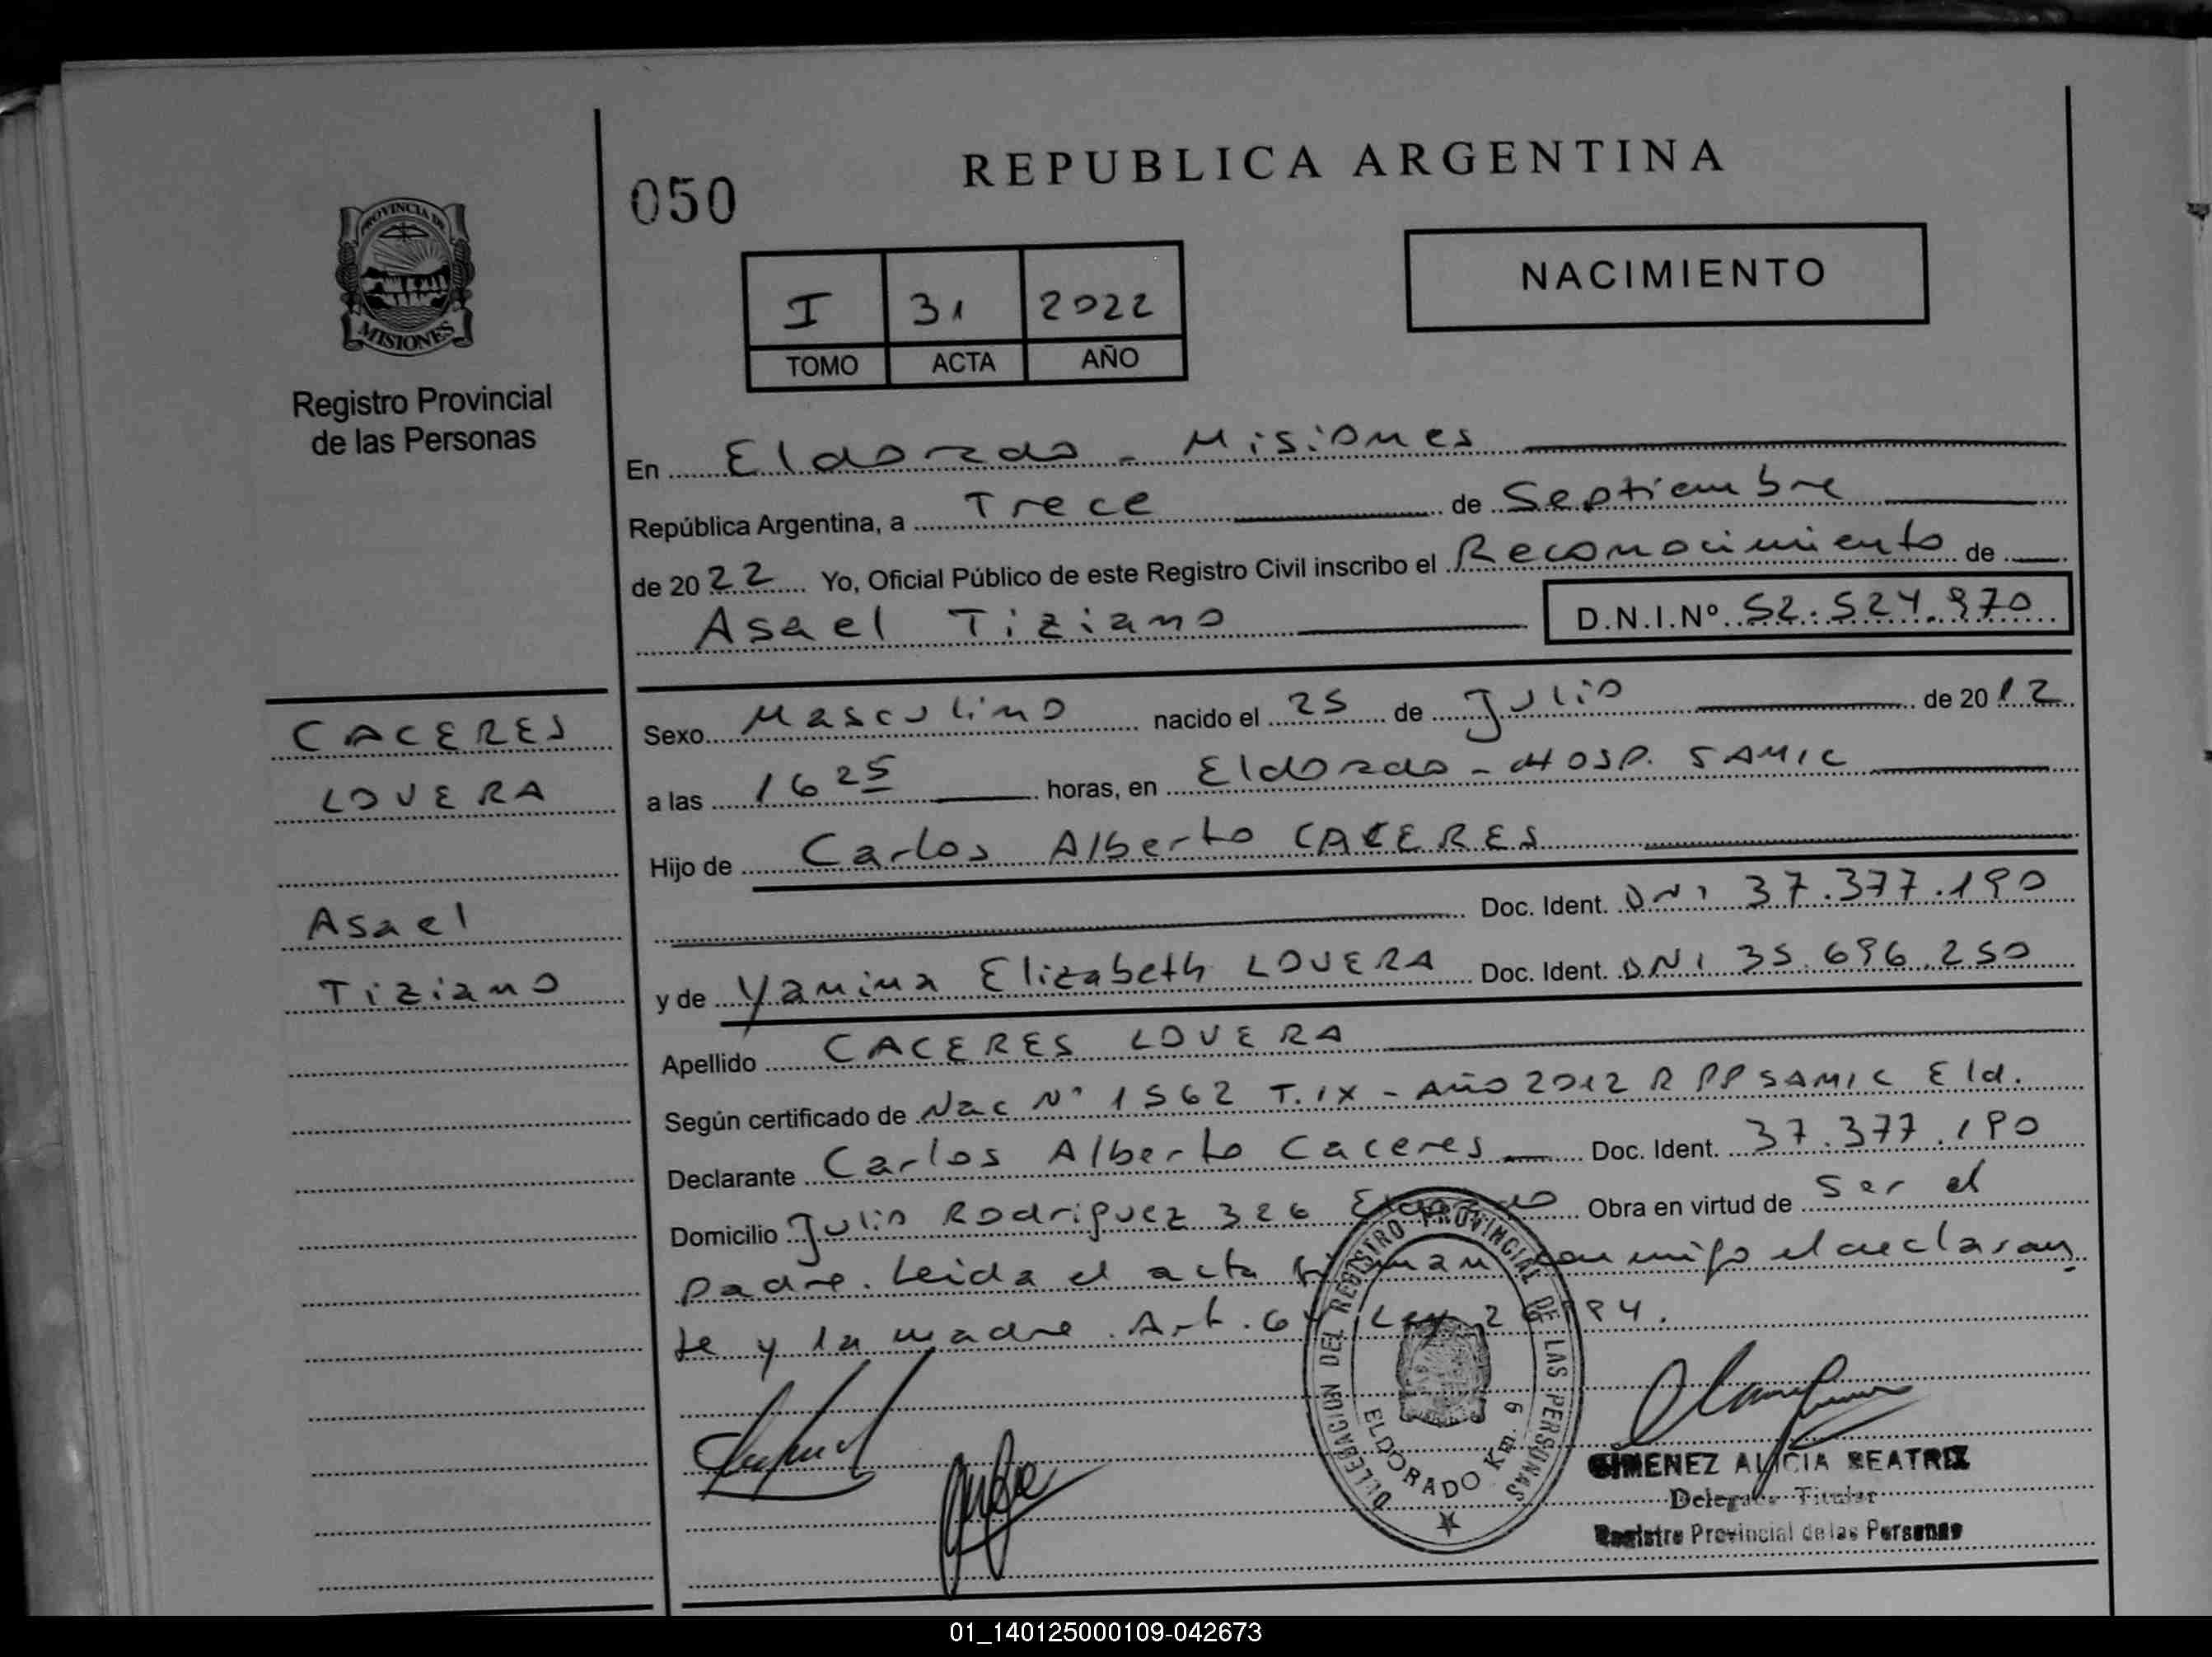 REPUBLICA ARGENTINA
050
PROVINCIA DE
MISIONES
Registro Provincial
de las Personas
I 31 2022
TOMO ACTA AÑO
NACIMIENTO
En Eldorado - Misiones
República Argentina, a Trece de Septiembre
de 2022 Yo, Oficial Público de este Registro Civil inscribo el Reconocimiento de
Asael Tiziano D.N.I.Nº 52.524.970
CACERES
LOVERA
Asael
Tiziano
Sexo Masculino nacido el 25 de Julio de 2012
a las 16 25 horas, en Eldorado - HOSP. SAMIC
Hijo de Carlos Alberto CACERES
Doc. Ident. DNI 37.377.190
y de Yanina Elizabeth LOVERA Doc. Ident. DNI 35.696.250
Apellido CACERES LOVERA
Según certificado de Nac Nº 1562 T.IX - Año 2012 R PP SAMIC Eld.
Declarante Carlos Alberto Caceres Doc. Ident. 37.377.190
Domicilio Julio Rodriguez 326 Eldorado Obra en virtud de Ser el
padre. Leida el acta firman conmigo el declaran
te y la madre. Art. 64 Ley 26994.
DELEGACION DEL REGISTRO PROVINCIAL DE LAS PERSONAS
ELDORADO Km 9
GIMENEZ ALICIA BEATRIZ
Delegada Titular
Registro Provincial de las Personas
01_140125000109-042673